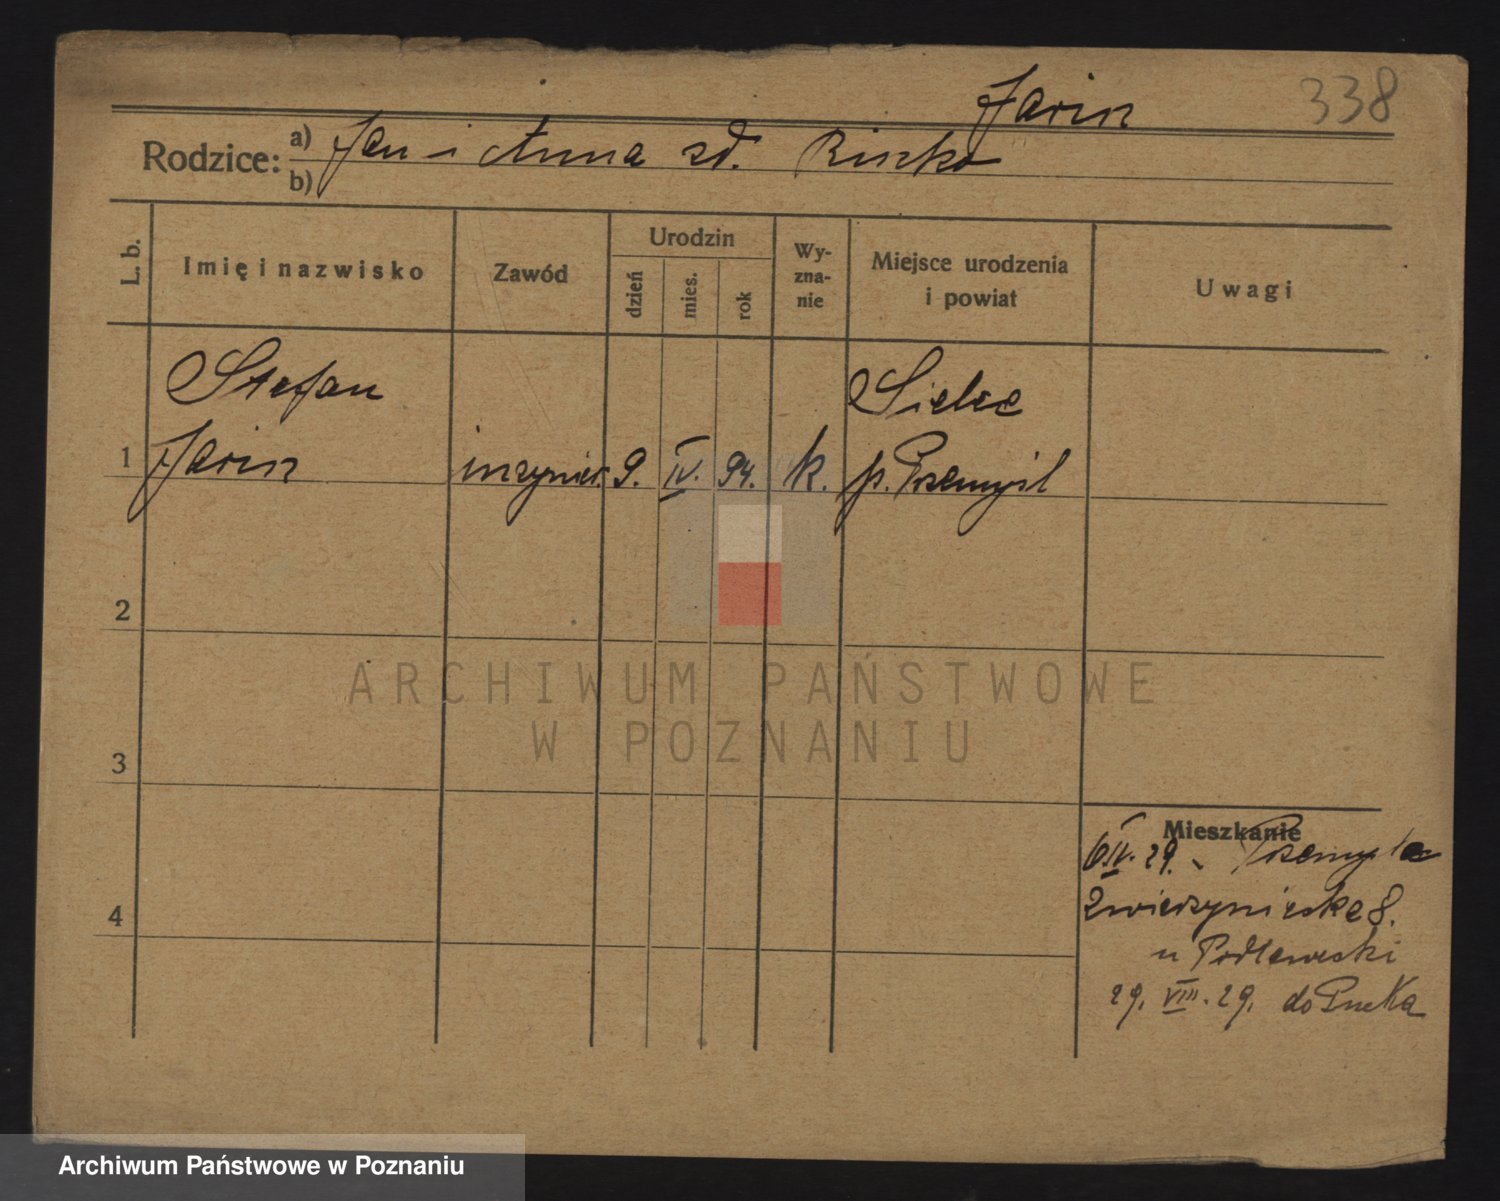 Jarin 338
Rodzice: a) Jan i Anna zd. Rinzko
b)
L. b. Imię i nazwisko Zawód Urodzin dzień mies. rok Wyznanie Miejsce urodzenia i powiat Uwagi
Stefan Sielce
1 Jarin inżynier 9. IV. 94. k. p. Przemyśl
2
ARCHIWUM PAŃSTWOWE
W POZNANIU
3
Mieszkanie
6 IV. 29. Przemyśla
4 Zwierzyniecka 8.
u Podlewski
29. VIII. 29. do Pucka
Archiwum Państwowe w Poznaniu